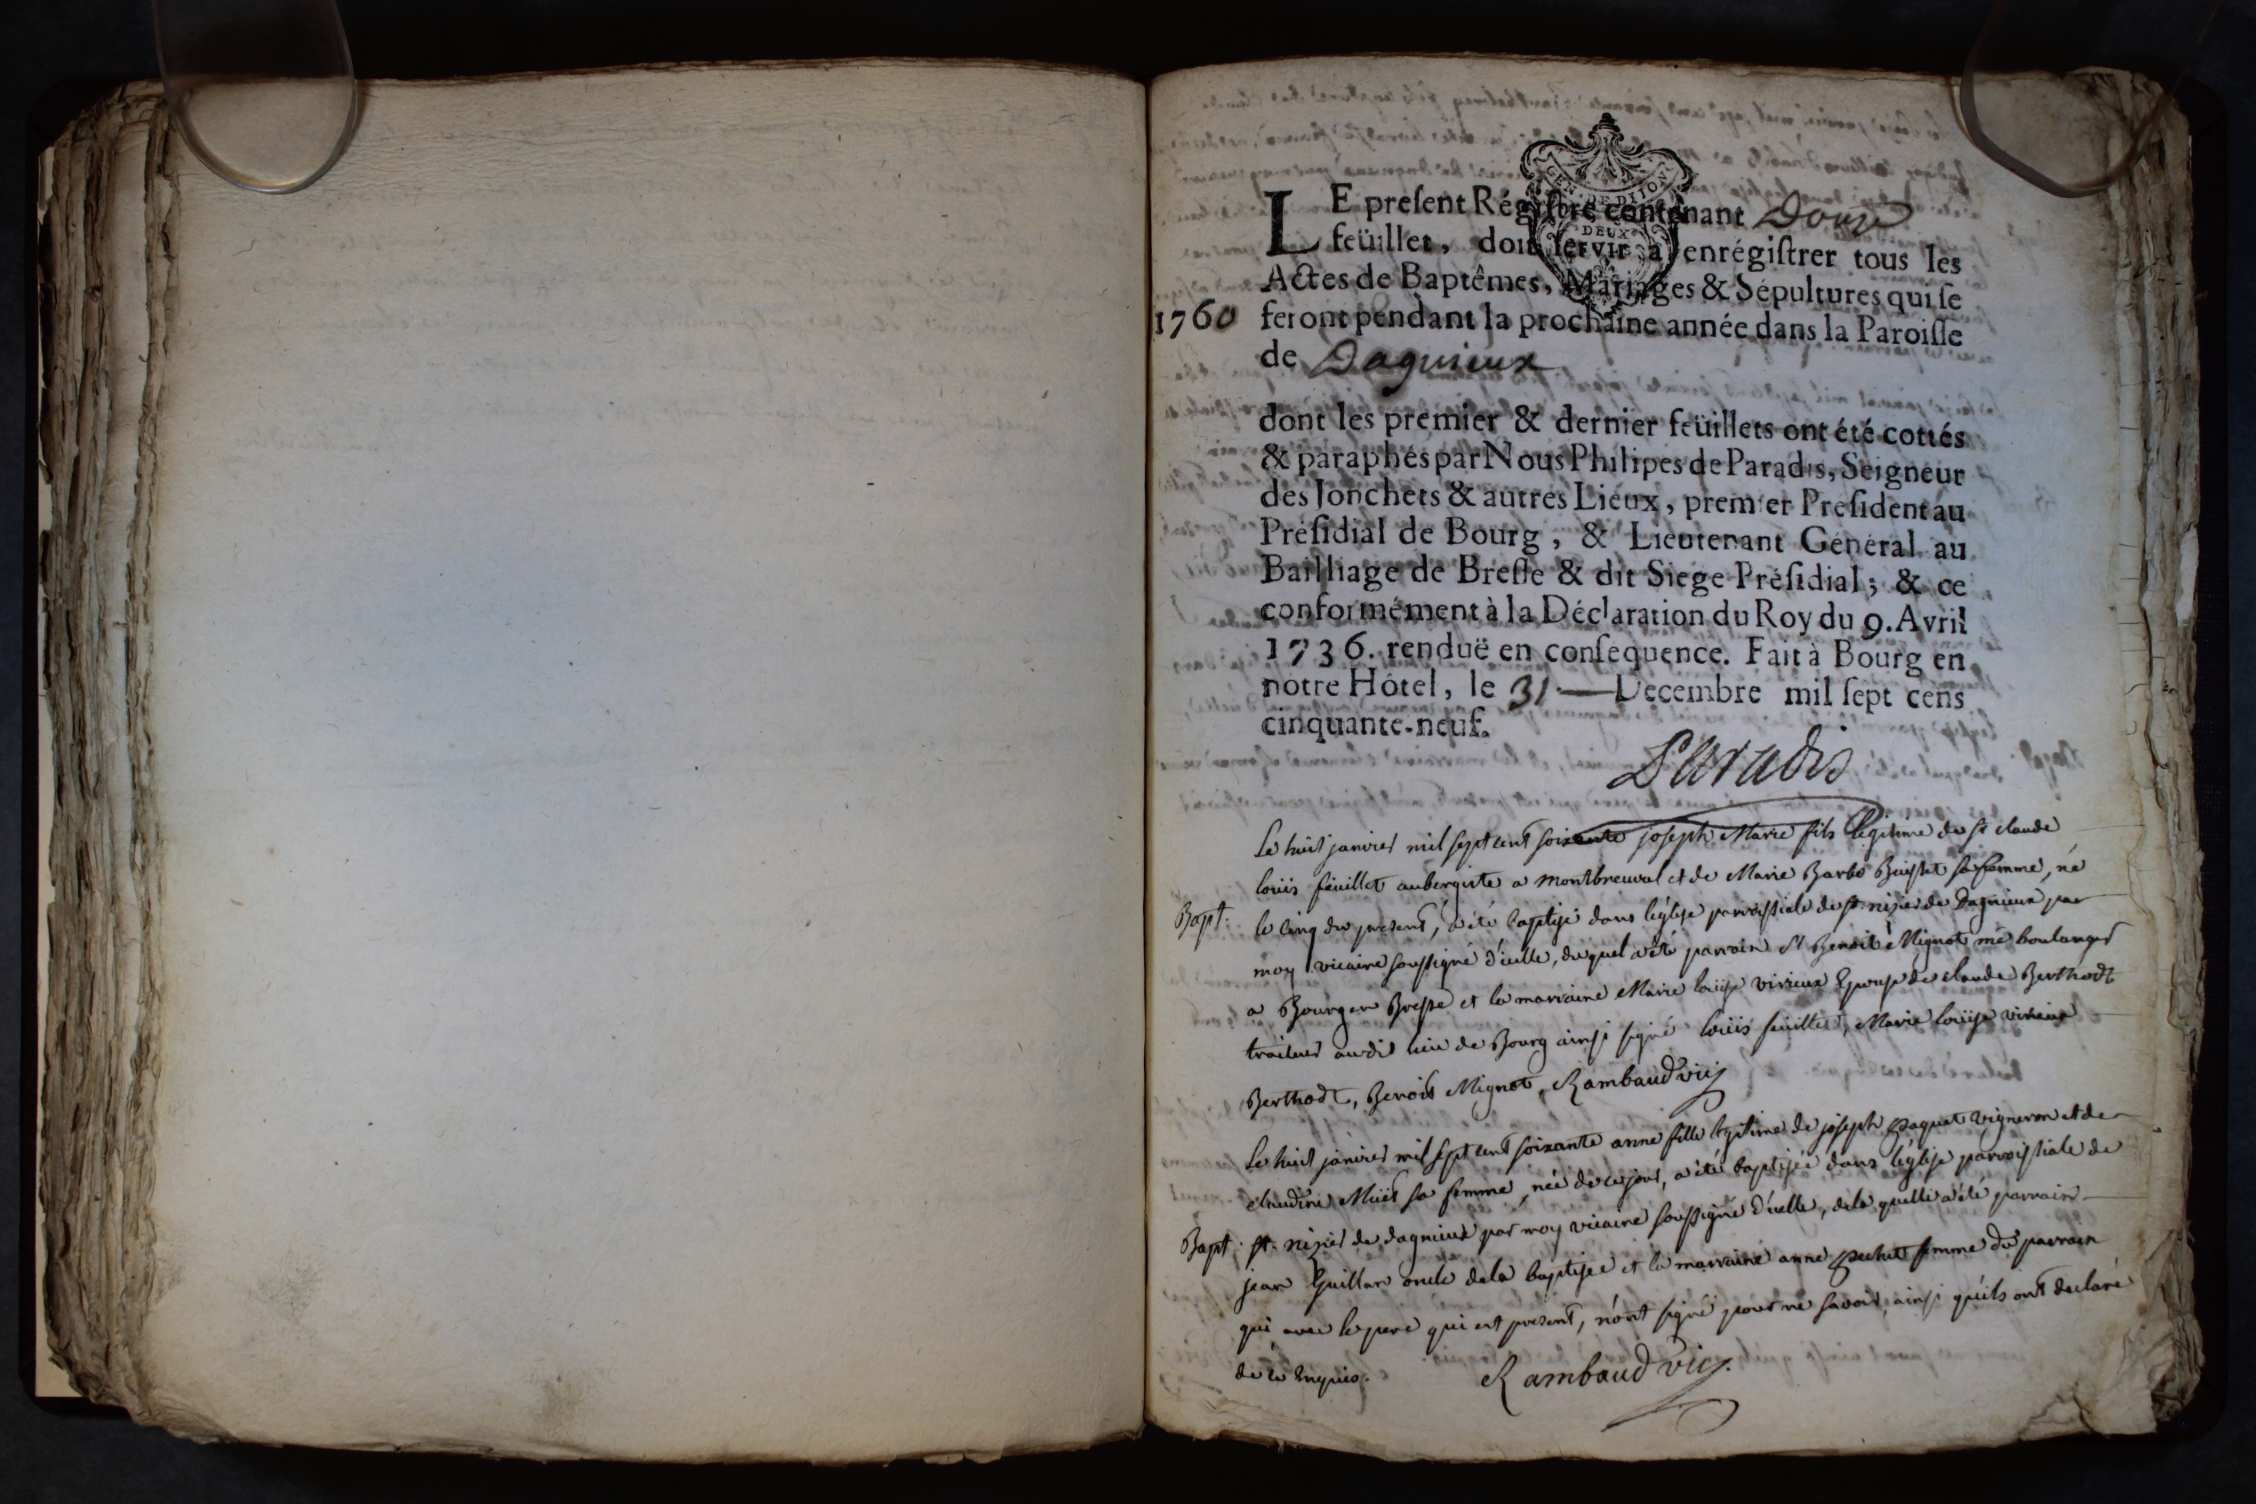 LE preſent Régiſtre contenant Douze
feüillet, doit ſervir à enrégiſtrer tous les
Actes de Baptêmes, Mariages & Sépultures qui ſe
1760 feront pendant la prochaine année dans la Paroiſſe
de Dagnieux
dont les premier & dernier feüillets ont été cottés
& paraphés par Nous Philipes de Paradis, Seigneur
des Jonchets & autres Lieux, premier Preſident au
Préſidial de Bourg, & Lieutenant Général au
Bailliage de Breſſe & dit Siege Préſidial; & ce
conformément à la Déclaration du Roy du 9. Avril
1736. renduë en conſequence. Fait à Bourg en
notre Hôtel, le 31 Decembre mil ſept cens
cinquante-neuf.
Paradis
Le huit janvier mil sept cent soixante joseph Marie fils legitime de sr claude
loüis feüillet aubergiste a montbreuval et de Marie Barbe Buisset sa femme, né
Bapt: le cinq du present, a été baptisé dans l'église parroissiale de st. nizier de Dagnieux par
moy vicaire soussigné d'icelle, du quel a été parrain sr Benoit Mignot me boulanger
a Bourg en Bresse et la marraine Marie loüise virieux Epouse de claude Berthodt
traiteur audit lieu de Bourg ainsi signé loüis feüillet, Marie loüise virieux
Berthodt, Benoit Mignot, Rambaud vic
Le huit janvier mil sept cent soixante anne fille legitime de joseph paquet vigneron et de
claudine Müet sa femme, née de ce jour, a été baptisée dans l'église parroissiale de
Bapt: st. nizier de dagnieux par moy vicaire soussigné d'icelle, de la quelle a été parrain
jean Guillan oncle de la baptisée et la marraine anne pechet femme du parrain
qui avec le pere qui est present, n'ont signé pour ne savoir, ainsi qu'ils ont declaré
de ce Enquis. Rambaud vic.